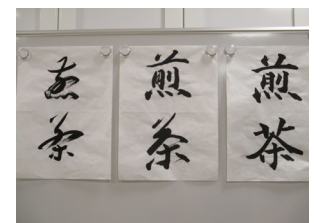 煎茶
煎茶
煎茶